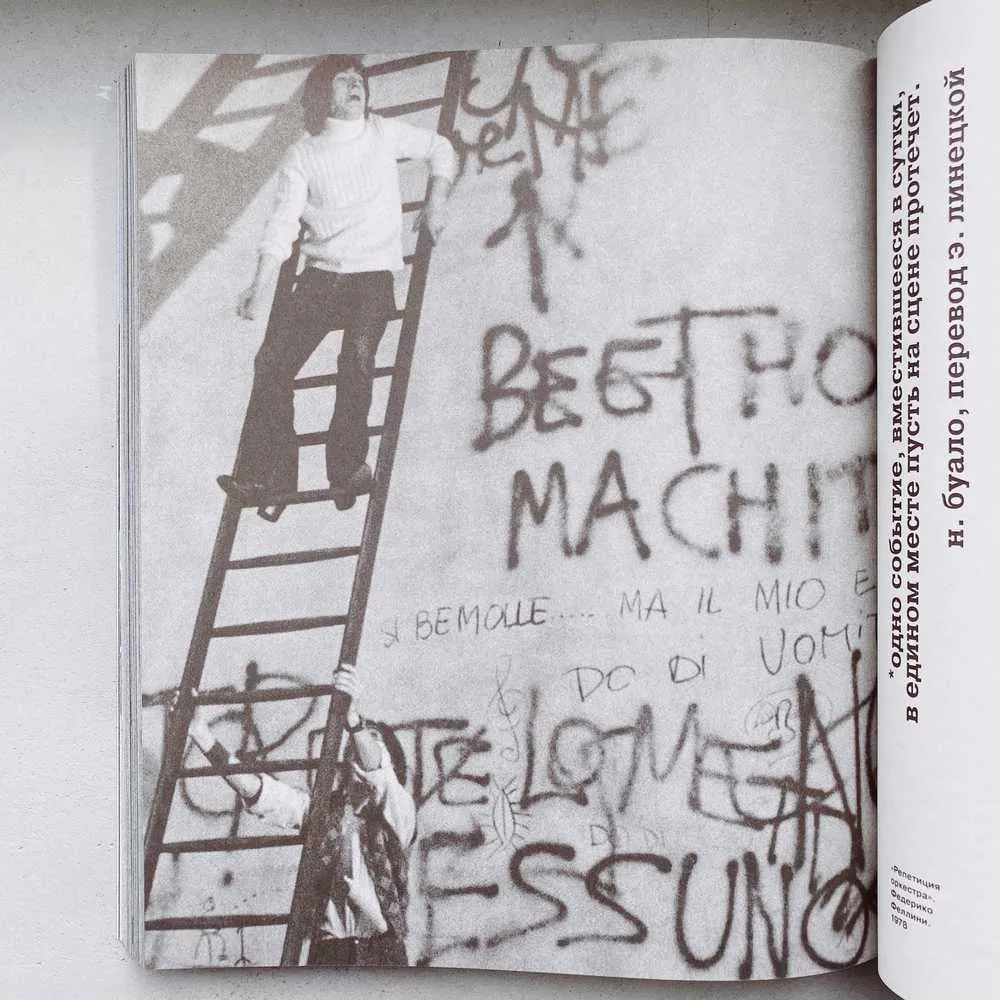 BEETHO
MACHIT
SI BEMOLLE..... MA IL MIO E
DO DI VOMIT
TE LO MEGA
DO DI
ESSUNO
*одно событие, вместившееся в сутки,
в едином месте пусть на сцене протечет.
н. буало, перевод э. линецкой
«Репетиция
оркестра».
Федерико
Феллини.
1978